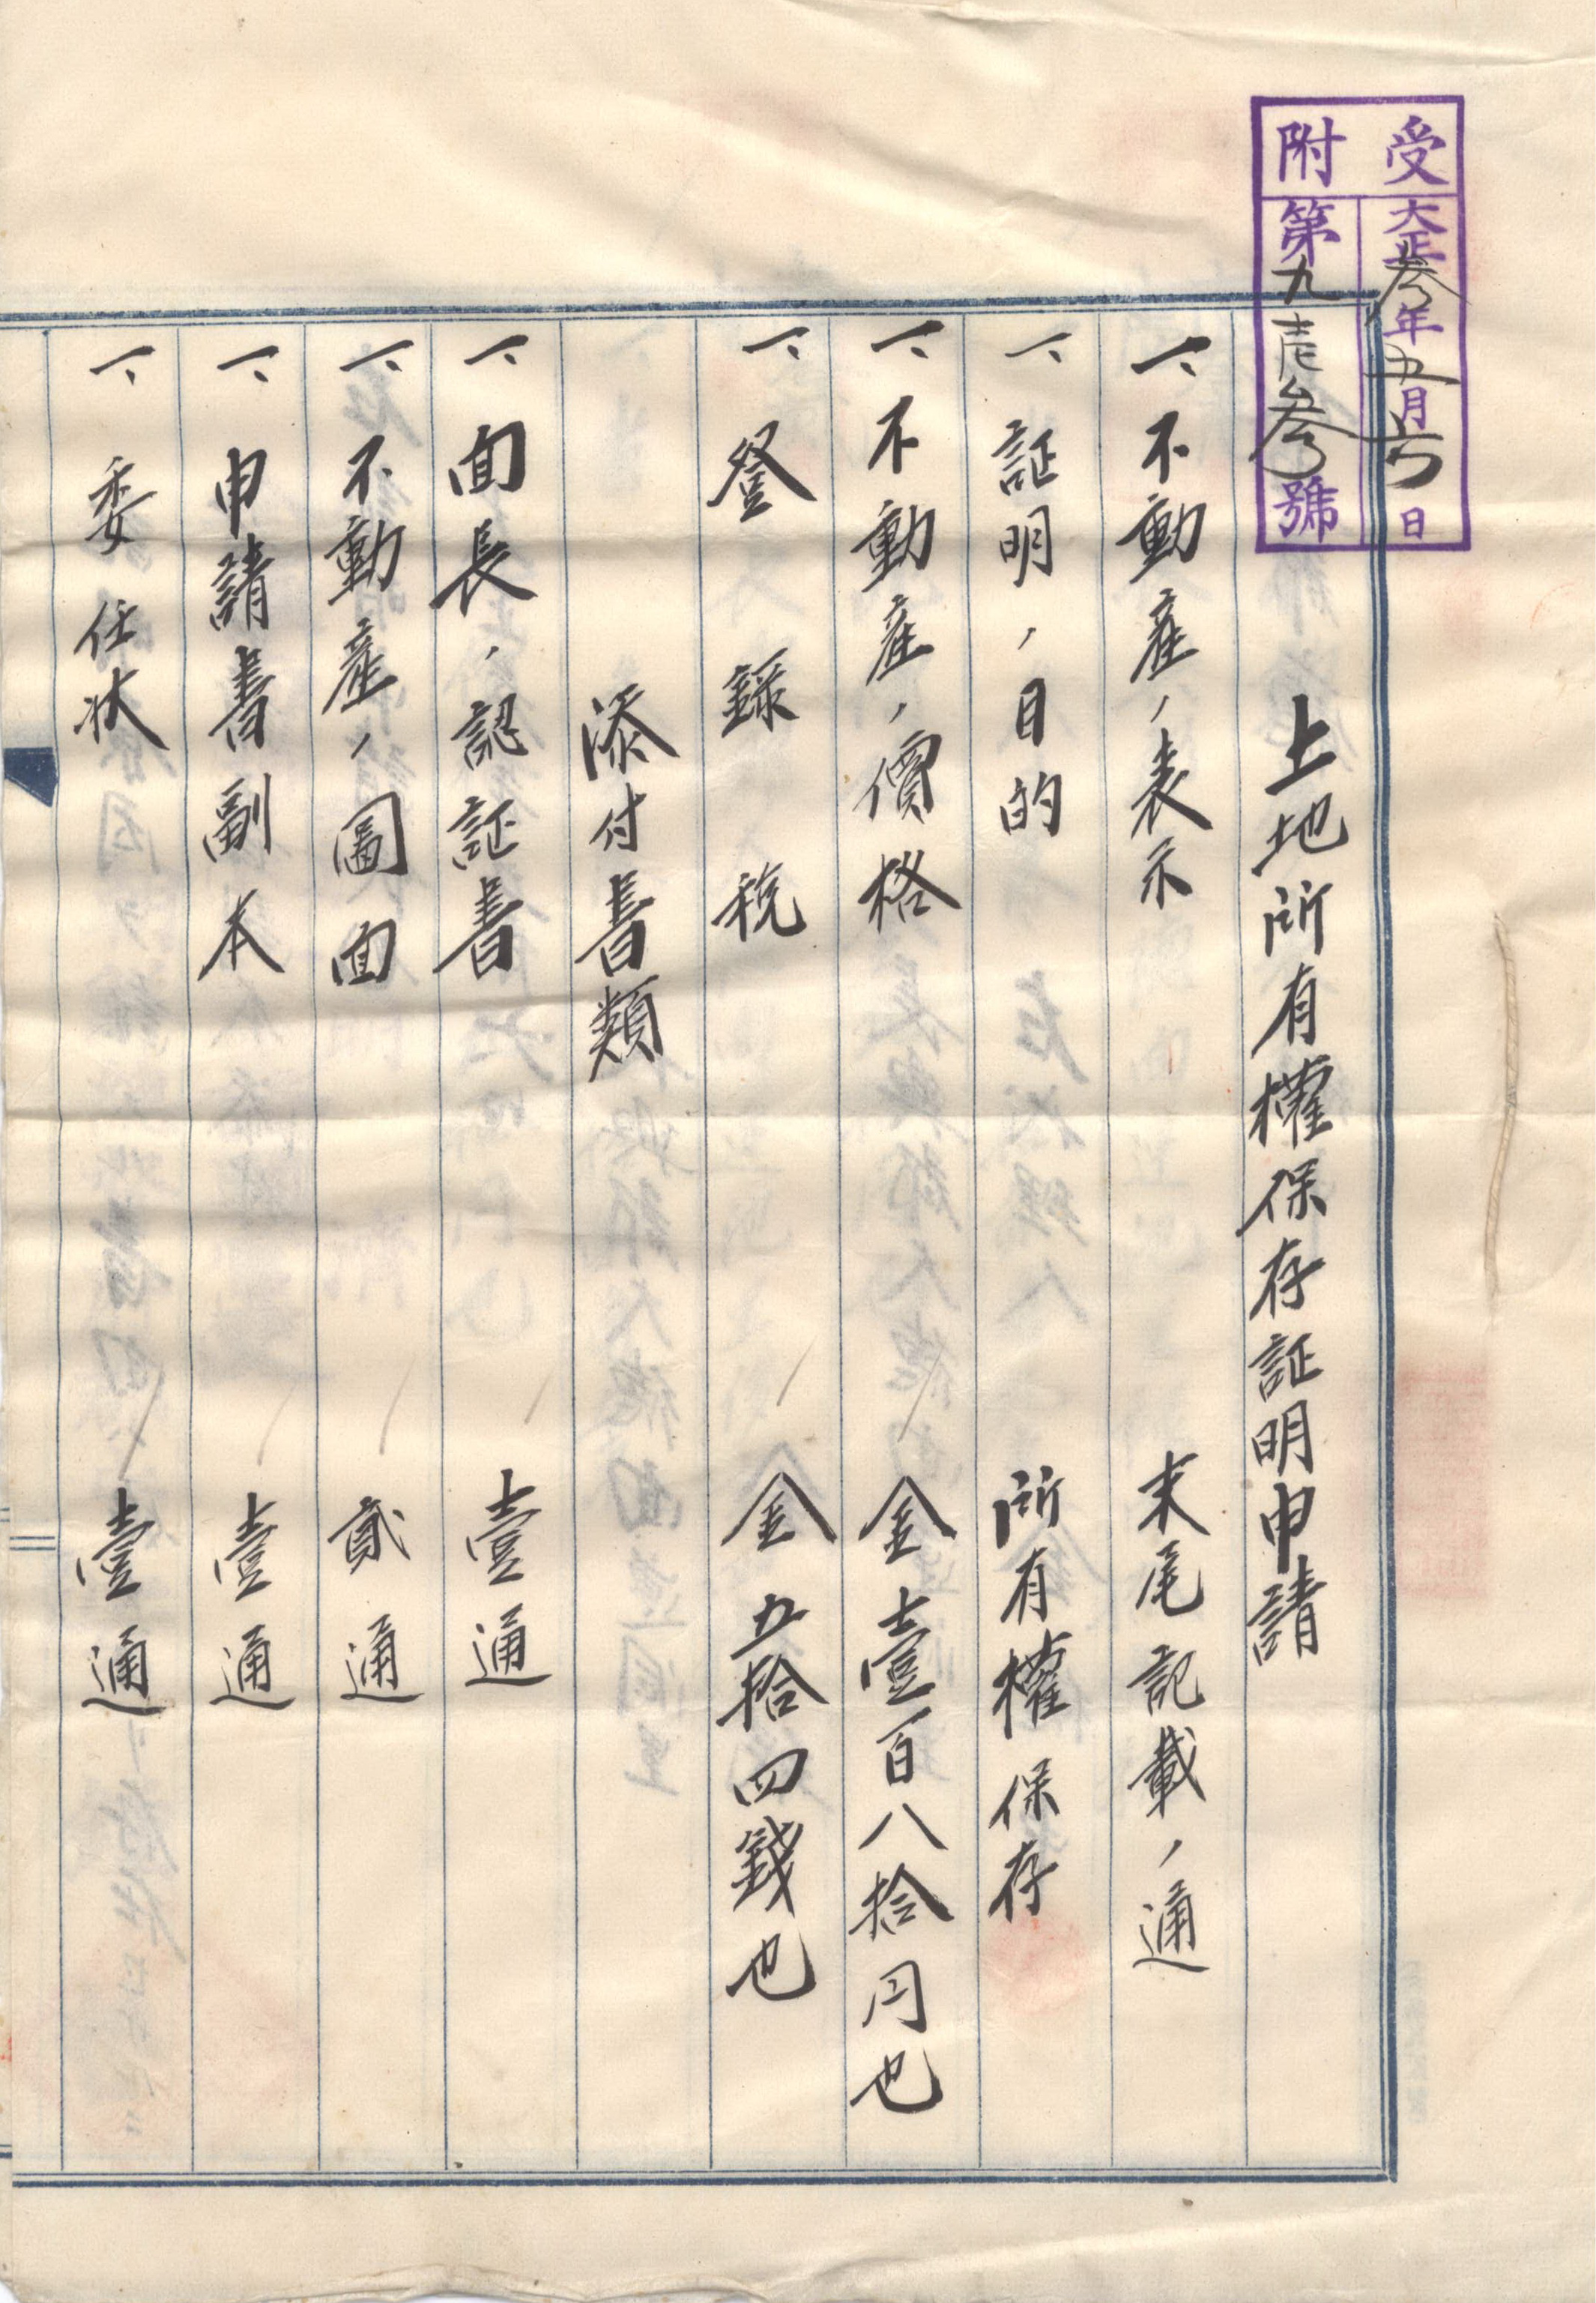 受附
大正参年五月六日
第九壱参號
土地所有權保存証明申請
一、不動産ノ表示 末尾記載ノ通
一、証明ノ目的 所有權保存
一、不動産ノ價格 金壹百八拾円也
一、登録税 金五拾四錢也
添付書類
一、面長ノ認証書 壹通
一、不動産ノ圖面 貳通
一、申請書副本 壹通
一、委任状 壹通